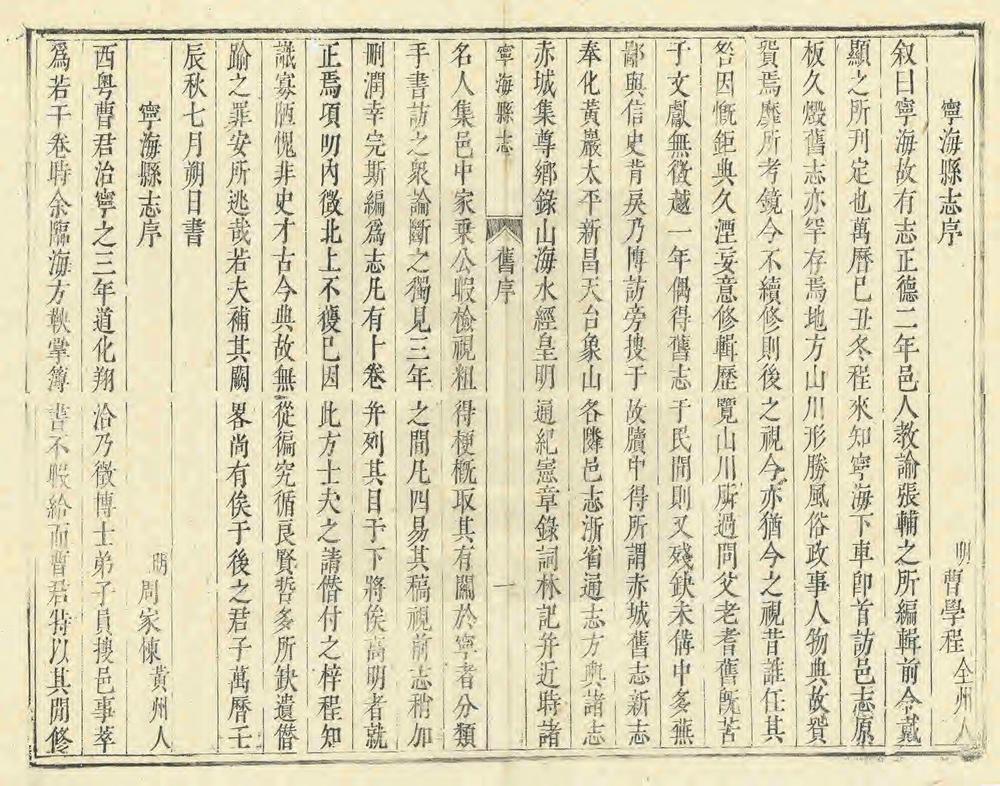 寧海縣志序 明 曹學程 全州人
叙曰寧海故有志正德二年邑人教諭張輔之所編輯前令戴
顯之所刊定也萬曆己丑冬程來知寧海下車卽首訪邑志原
板久燬舊志亦罕存焉地方山川形勝風俗政事人物典故貿
貿焉靡所考鏡今不續修則後之視今亦猶今之視昔誰任其
咎因慨鉅典久湮妄意修輯歷覽山川所過問父老耆舊旣苦
于文獻無徵越一年偶得舊志于民間則又殘缺未備中多蕪
鄙與信史背戾乃博訪旁搜于故牘中得所謂赤城舊志新志
奉化黃巖太平新昌天台象山各隣邑志浙省通志方輿諸志
赤城集尊鄉錄山海水經皇明通紀憲章錄詞林記并近時諸
寧海縣志 舊序 一
名人集邑中家乘公暇檢視粗得梗槪取其有關於寧者分類
手書訪之衆論斷之獨見三年之間凡四易其稿視前志稍加
刪潤幸完斯編爲志凡有十卷并列其目于下將俟高明者就
正焉項叨內徵北上不獲已因此方士夫之請僣付之梓程知
識寡陋愧非史才古今典故無從徧究循良賢哲多所缺遺僣
踰之罪安所逃哉若夫補其闕畧尚有俟于後之君子萬曆壬
辰秋七月朔日書
寧海縣志序 明 周家棟 黃州人
西粤曹君治寧之三年道化翔洽乃徵博士弟子員搜邑事萃
爲若干卷時余臨海方鞅掌簿書不暇給而曹君特以其閒修